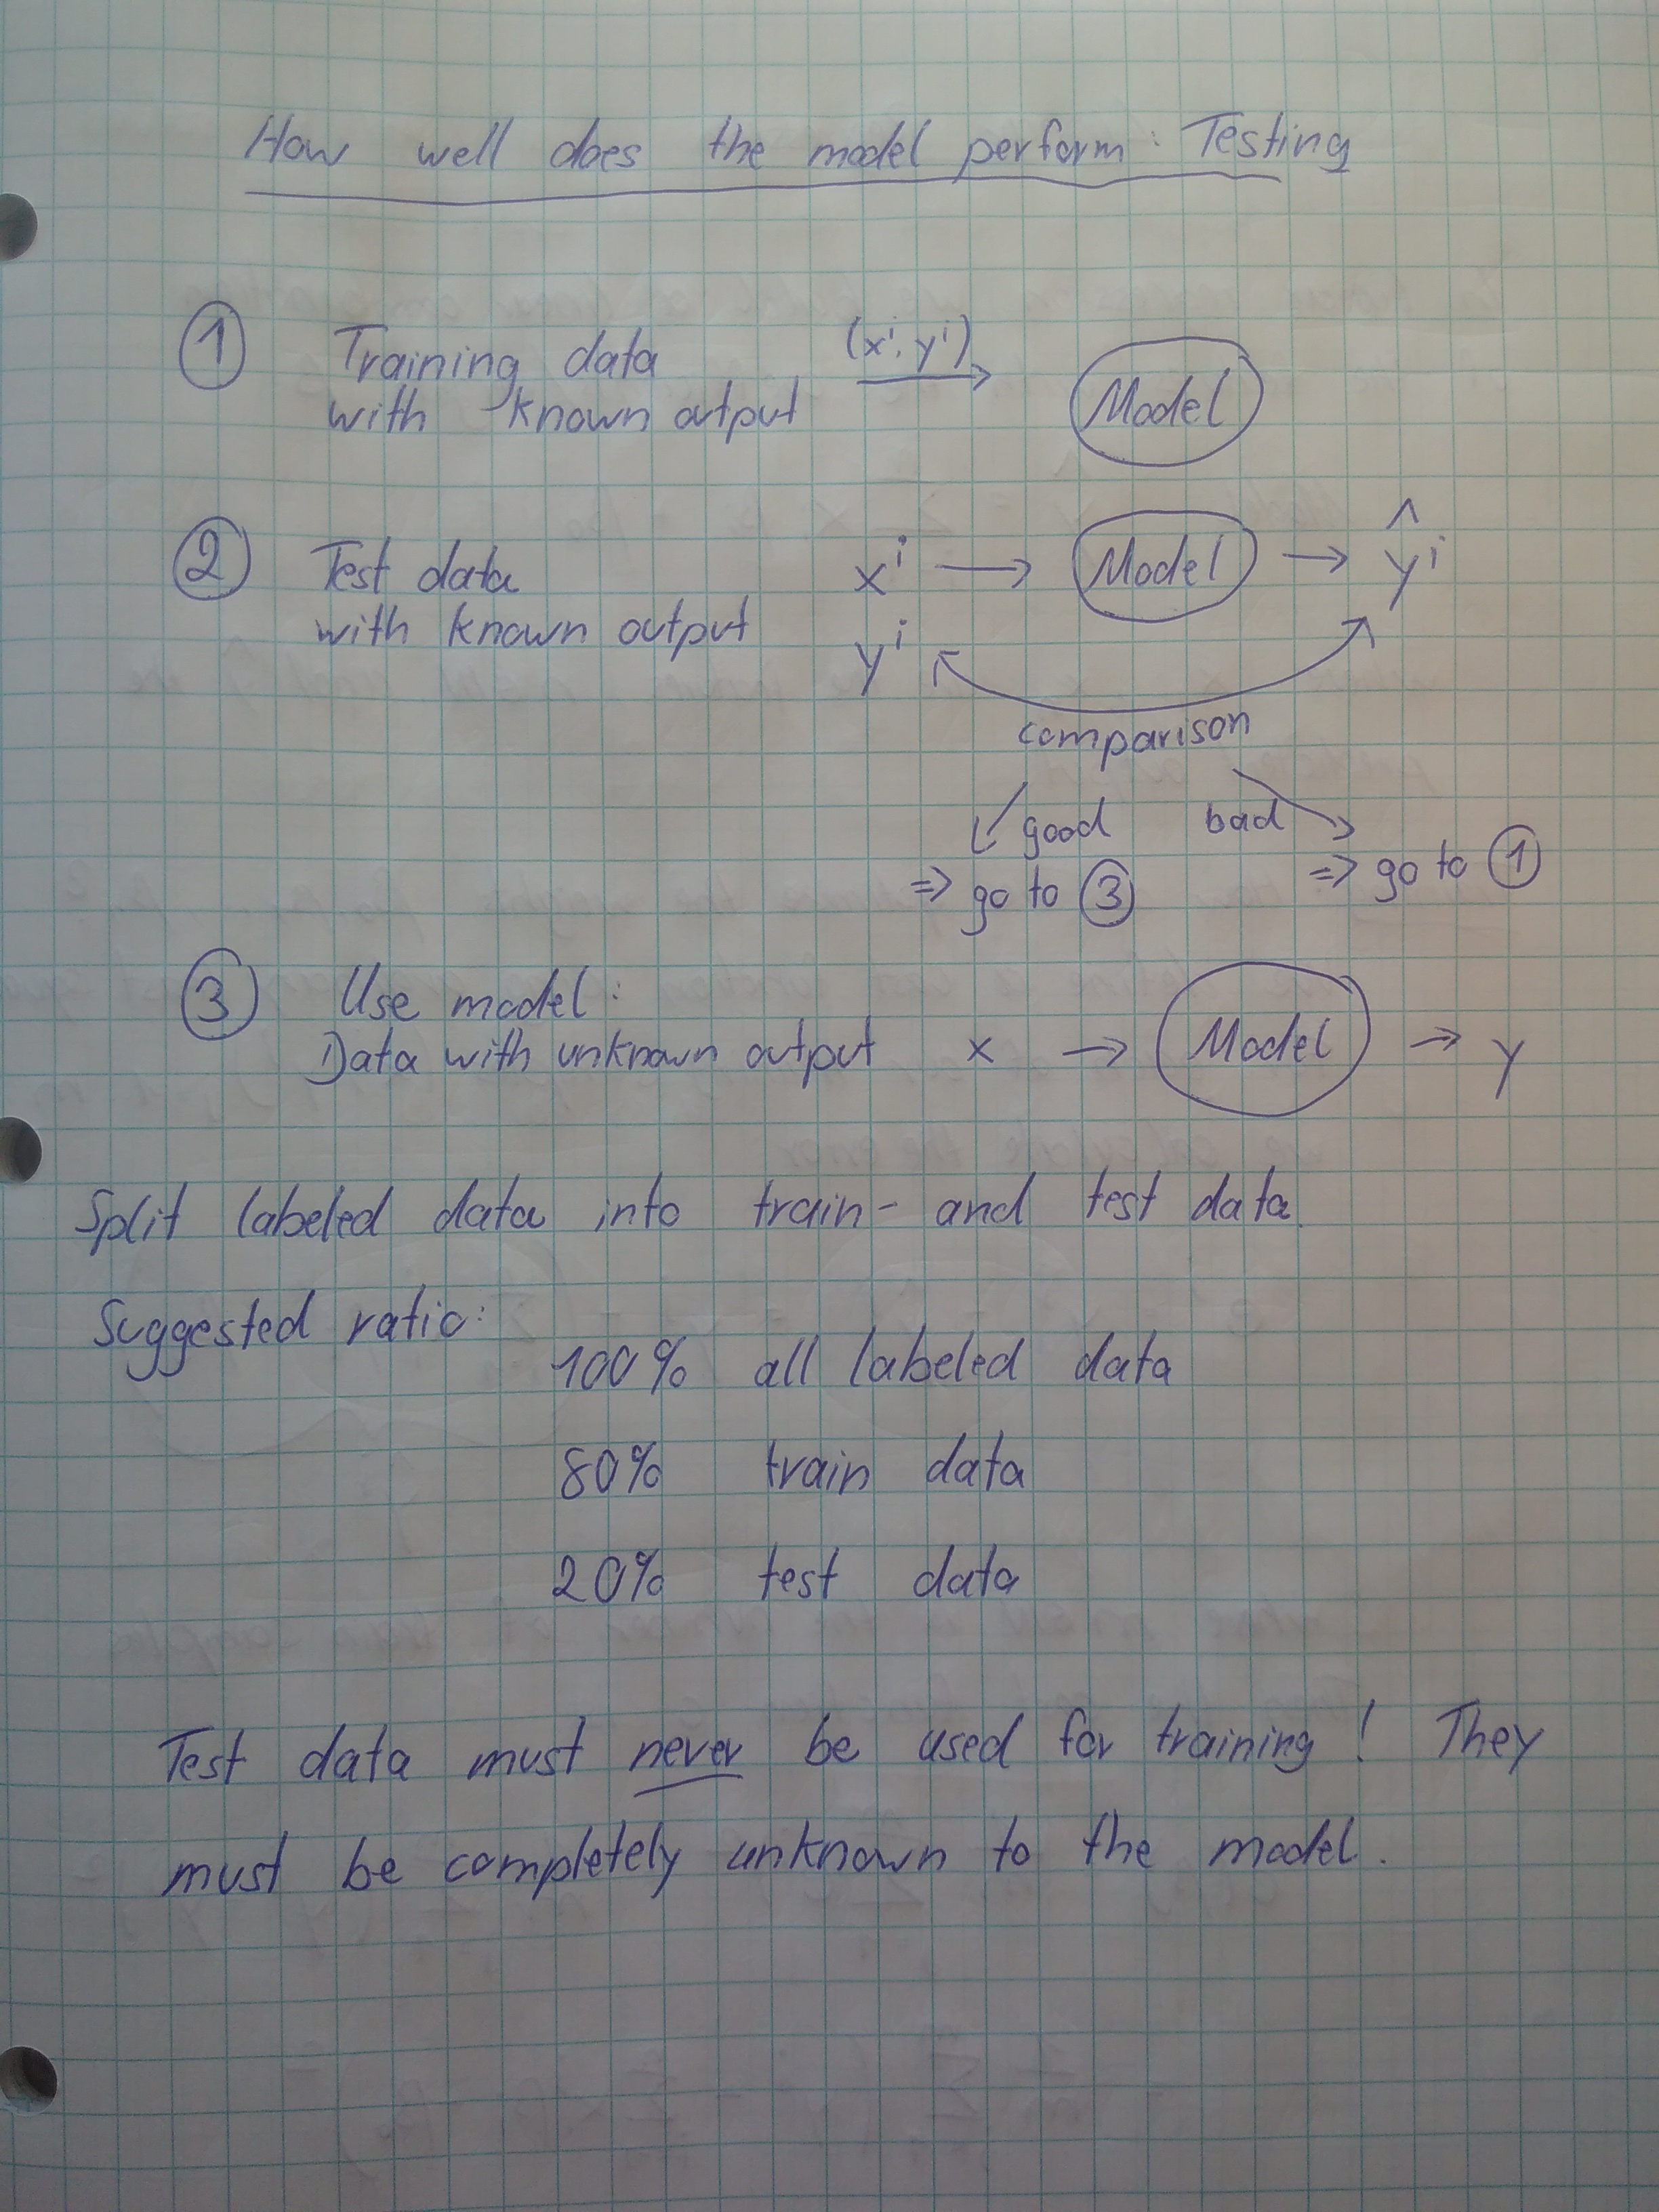 How well does the model perform: Testing
1 Training data (xⁱ, yⁱ) Model
with known output
2 Test data xⁱ → Model → ŷⁱ
with known output yⁱ
comparison
good bad
⇒ go to 3 ⇒ go to 1
3 Use model:
Data with unknown output x → Model → y
Split labeled data into train- and test data.
Suggested ratio:
100% all labeled data
80% train data
20% test data
Test data must never be used for training! They
must be completely unknown to the model.